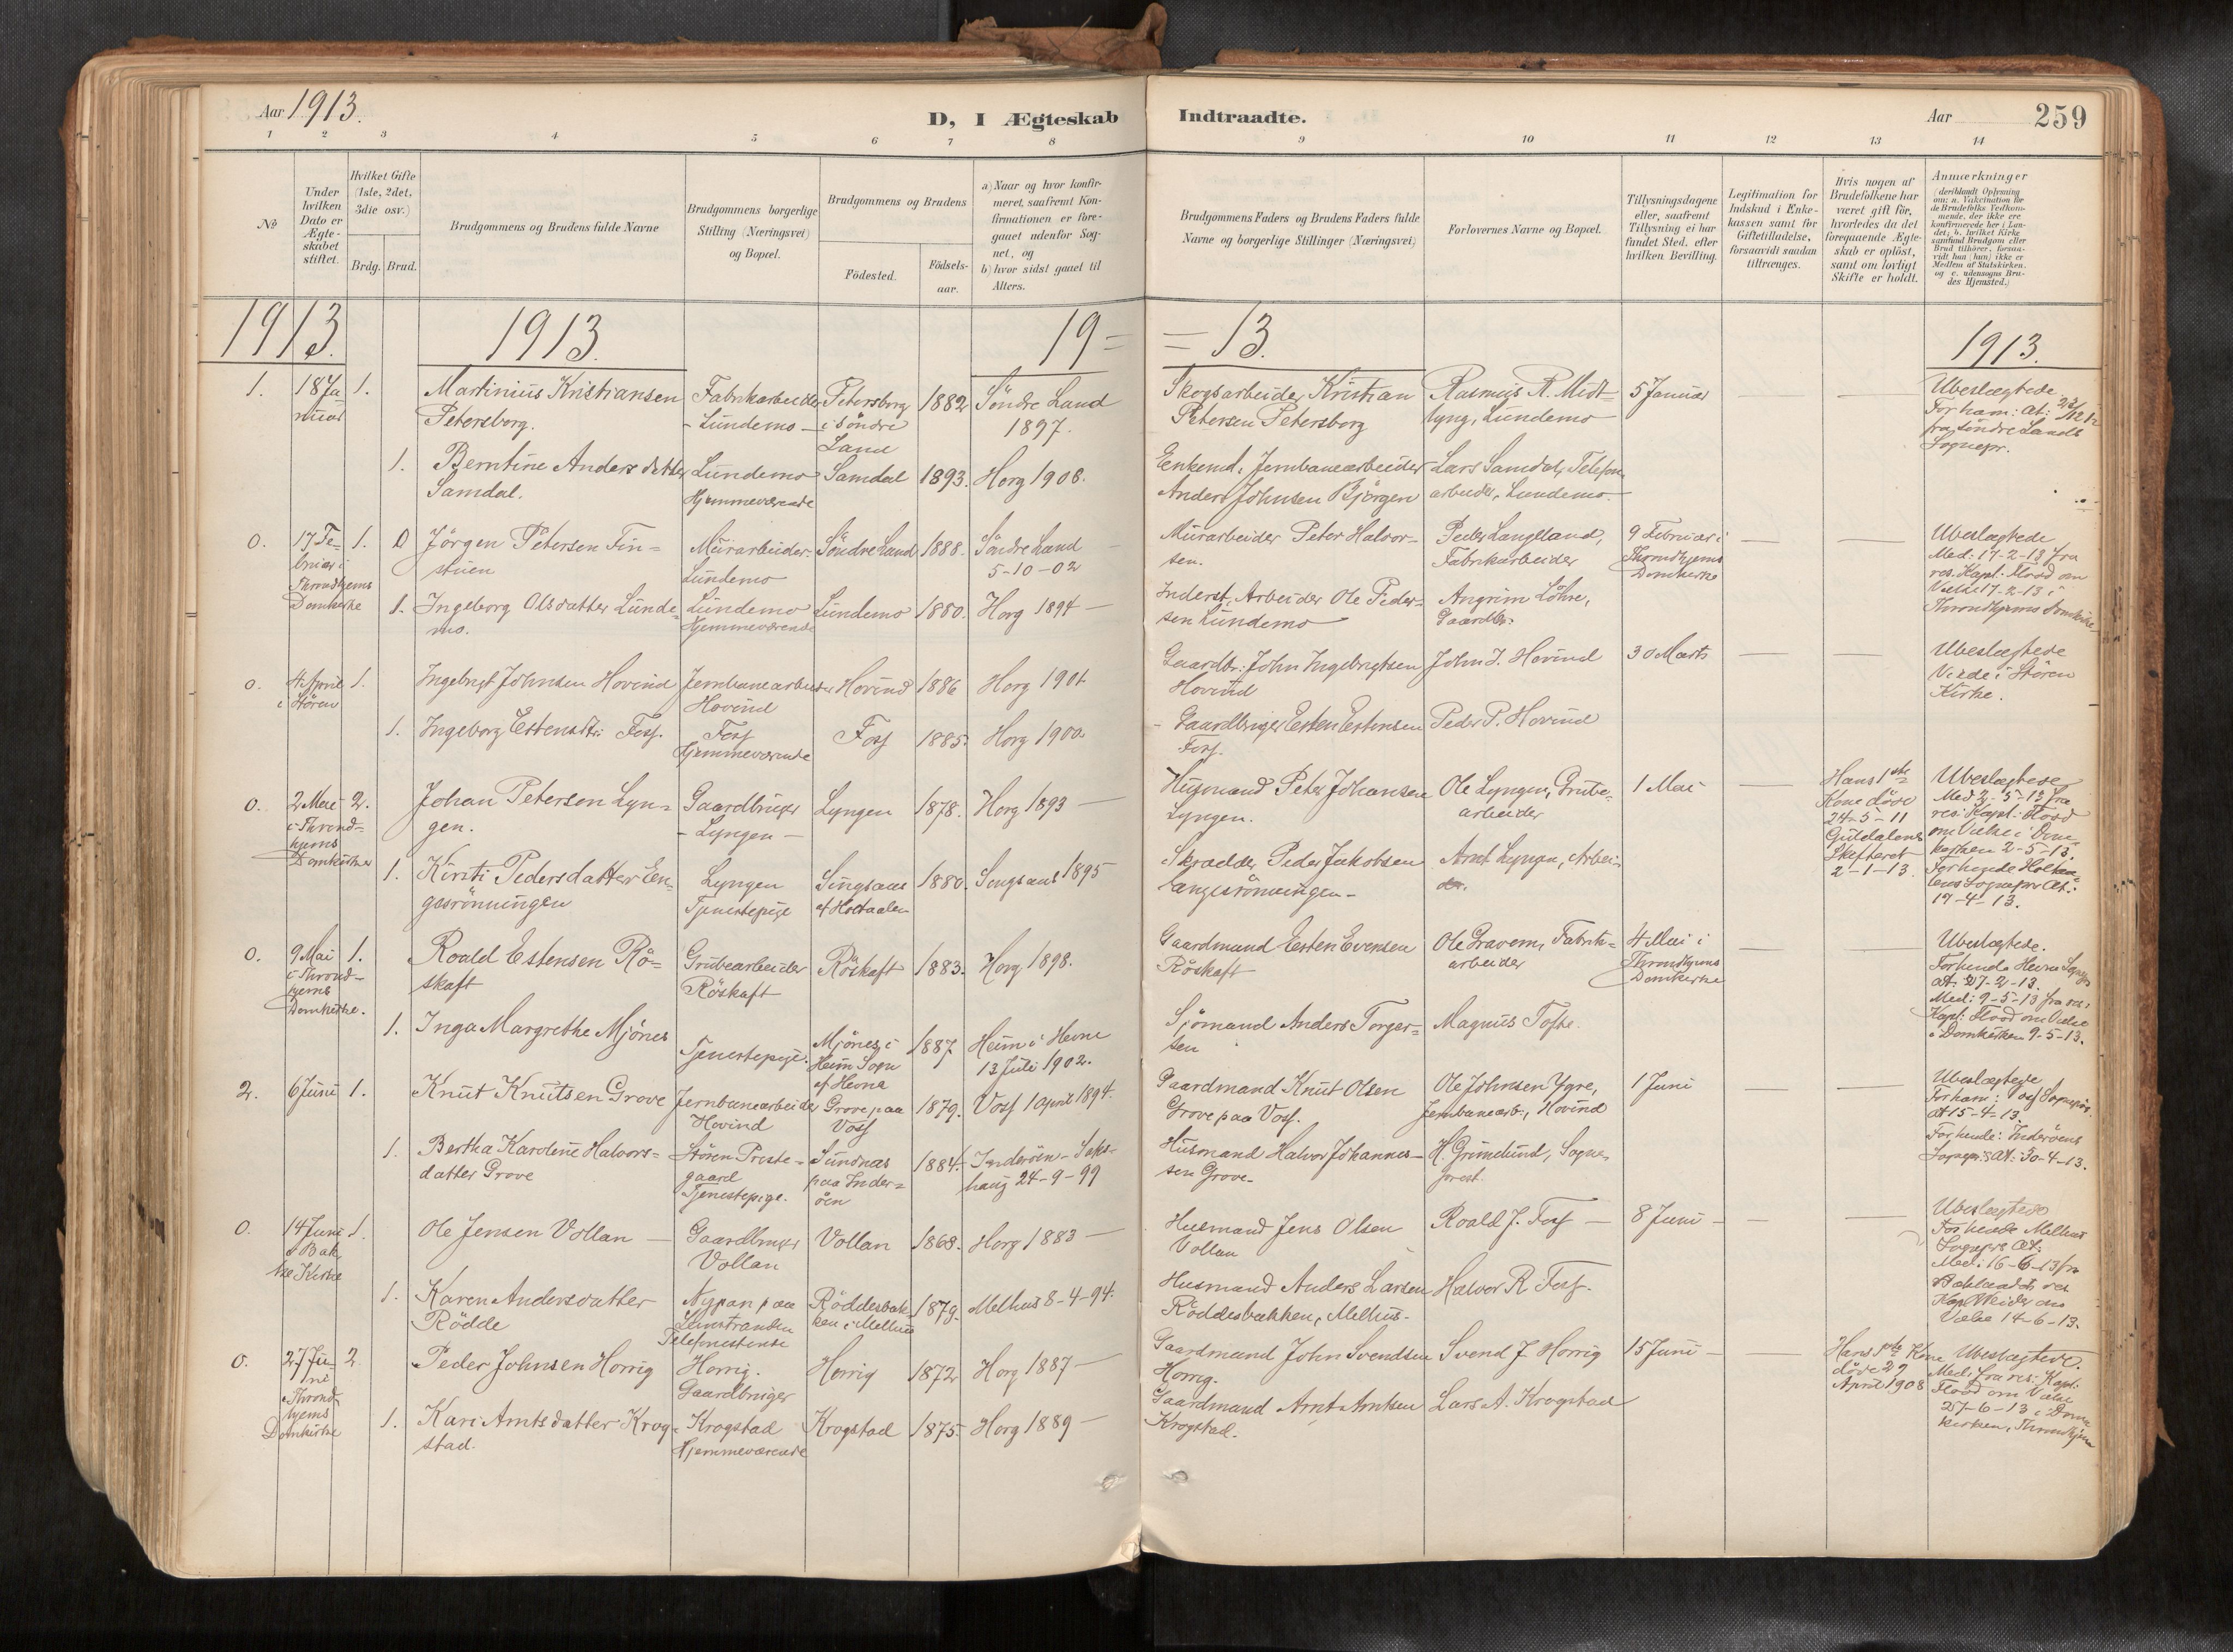 Aar 1913.
D, I Ægteskab
Indtraadte.
Aar
259
1 2 3 4 5 6 7 8
9 10 11 12 13 14
No
Under hvilken Dato er Ægteskabet stiftet.
Hvilket Gifte (1ste, 2det, 3die osv.)
Brdg. Brud.
Brudgommens og Brudens fulde Navne
Brudgommens borgerlige Stilling (Næringsvei) og Bopæl.
Brudgommens og Brudens
Födested.
Födsels-aar.
a) Naar og hvor konfirmeret, saafremt Konfirmationen er foregaaet udenfor Sognet, og
b) hvor sidst gaaet til Alters.
Brudgommens Faders og Brudens Faders fulde Navne og borgerlige Stillinger (Næringsvei)
Forlovernes Navne og Bopæl.
Tillysningsdagene eller, saafremt Tillysning ei har fundet Sted, efter hvilken Bevilling.
Legitimation for Indskud i Enkekassen samt for Giftetilladelse, forsaavidt saadan tiltrænges.
Hvis nogen af Brudefolkene har været gift för, hvorledes da det foregaaende Ægteskab er oplöst, samt om lovligt Skifte er holdt.
Anmærkninger
(deriblandt Oplysning om: a. Vakcination for de Brudefolks Vedkommende, der ikke ere konfirmerede her i Landet; b. hvilket Kirkesamfund Brudgom eller Brud tilhörer, forsaavidt han (hun) ikke er Medlem af Statskirken, og c. udensogns Brudes Hjemsted.)
1913. 1913. 19=
=13. 1913.
1. 18 Januar 1.
Martinius Kristiansen
Petersborg.
Fabrikarbeider
- Lundemo -
Petersborg
i Söndre
Land
1882
Söndre Land
1897.
Skogsarbeider Kristian
Petersen Petersborg
Rasmus R. Midt-
lyng, Lundemo
5 Januar
Ubeslægtede
For ham: at:
fra Söndre Lands
Sognepr.
1.
Berntine Andersdatter
Samdal.
Lundemo
Hjemmeværende
Samdal
1893.
Horg 1908.
Enkemd. Jernbanearbeider
Anders Johnsen Björgen
Lars Samdal, Telefon
arbeider, Lundemo.
0. 17 Fe-
bruar i
Throndhjems
Domkirke
1.
Jörgen Petersen Fin=
stuen
Murarbeider.
Lundemo
Söndre Land
1888.
Söndre Land
5-10-02
Murarbeider Peter Halvor-
sen.
Peder Langeland,
Fabrikarbeider
9 Februar i
Throndhjems
Domkirke
Ubeslægtede
Med: 17-2-13 fra
res. Kapl. Flood om
Vielse 17-2-13 i
Throndhjems Domkirke
1.
Ingeborg Olsdatter Lunde-
mo.
Lundemo
Hjemmeværende
Lundemo
1880.
Horg 1894 -
Inderst, Arbeider Ole Peder-
sen Lundemo
Angrim Löhre,
Gaardbr:
0. 4 April
i Stören
1.
Ingebrigt Johnsen Hovind
Jernbanearbeider
Hovind
Hovind
1886
Horg 1901
Gaardbr: John Ingebrigtsen
Hovind
John J. Hovind
30 Marts
Ubeslægtede
Viede i Stören
Kirke.
1.
Ingeborg Estensdtr: Foss.
Foss
Hjemmeværende
Foss
1885.
Horg 1900.
- Gaardbruger Esten Estensen
Foss.
Peder P. Hovind
0. 2 Mai
i Thrond=
hjems
Domkirke
2.
Johan Petersen Lyn=
gen.
Gaardbruger
- Lyngen -
Lyngen
1878.
Horg 1893 -
Husmand Peter Johansen
Lyngen.
Ole Lyngen, Grube-
arbeider
1 Mai
Hans 1ste
Kone döde
24-5-11
Guldalens
Skifteret
2-1-13.
Ubeslægtede
Med 2-5-13 fra
res: Kapl: Flood
om Vielse i Dom
kirken 2-5-13.
For hende Holtaa-
lens Sognepr. At:
17-4-13.
1.
Kirsti Pedersdatter En-
gsrönningen
Lyngen
Tjenestepige
Singsaas
af Holtaalen
1880.
Singsaas 1895
Skrædder Peder Jakobsen
Engesrönningen -
Arnt Lyngen, Arbei-
der.
0. 9 Mai
i Thrond-
hjems
Domkirke.
1.
Roald Estensen Rö=
skaft
Grubearbeider
Röskaft
Röskaft
1883.
Horg 1898.
Gaardmand Esten Evensen
Röskaft
Ole Gravem, Fabrik=
arbeider
4 Mai i
Throndhjems
Domkirke
Ubeslægtede.
For hende Hevne Sognepr.
at. 27-2-13.
Med: 9-5-13 fra res:
Kapl: Flood om Vielse
i Domkirken 9-5-13.
1.
Inga Margrethe Mjönes
Tjenestepige.
Mjönes i
Heim Sogn
af Hevne
1887
Heim i Hevne
13 Juli 1902.
Sjömand Anders Torger=
sen
Magnus Tofte.
2. 6 Juni 1.
Knut Knutsen Grove
Jernbanearbeider
Hovind
Grove paa
Voss
1879.
Voss 1 April 1894.
Gaardmand Knut Olsen
Grove paa Voss.
Ole Johnsen Ygre,
Jernbanearb:, Hovind
1 Juni
Ubeslægtede
For ham: Voss Sognepr.
at 15-4-13.
For hende: Inderöens
Sognepr: At: 30-4-13.
1.
Bertha Karoline Halvors=
datter Grove
Stören Preste-
gaard
Tjenestepige.
Sundnæs
paa Inder=
öen
1884.
Inderöen - Saks-
haug 24-9-99
Husmand Halvor Johannes-
sen Grove.
H. Grimelund, Sogne-
prest.
0. 14 Juni
i Bak
ke Kirke
1.
Ole Jensen Vollan -
Gaardbruger
Vollan
Vollan
1868.
Horg 1883 -
Husmand Jens Olsen
Vollan
Roald J. Foss -
8 Juni -
Ubeslægtede
For hende Melhus
Sognepr. At:
Med: 16-6-13 fra
Baklandets res
Kapl Weider om
Vielse 14-6-13.
1.
Karen Andersdatter
Rödde
Nypan paa
Leinstranden
Telefonistinde
Röddesbak
ken i Melhus
1879.
Melhus 8-4-94.
Husmand Anders Larsen
Röddesbakken, Melhus.
Halvor R Foss.
0. 27 Ju-
ni
i Thrond-
hjems
Domkirke
2.
Peder Johnsen Horrig
Horrig.
Gaardbruger
Horrig
1872
Horg 1887 -
Gaardmand John Svendsen
Horrig.
Svend J. Horrig
15 Juni -
Hans 1ste Kone
döde 29
April 1908
Ubeslægtede.
Med: fra res: Kapl:
Flood om Vielse
27-6-13 i Dom
kirken, Throndhjem
1.
Kari Arntsdatter Krog-
stad.
Krogstad
Hjemmeværende
Krogstad
1875.
Horg 1889 -
Gaardmand Arnt Arntsen
Krogstad.
Lars A. Krogstad